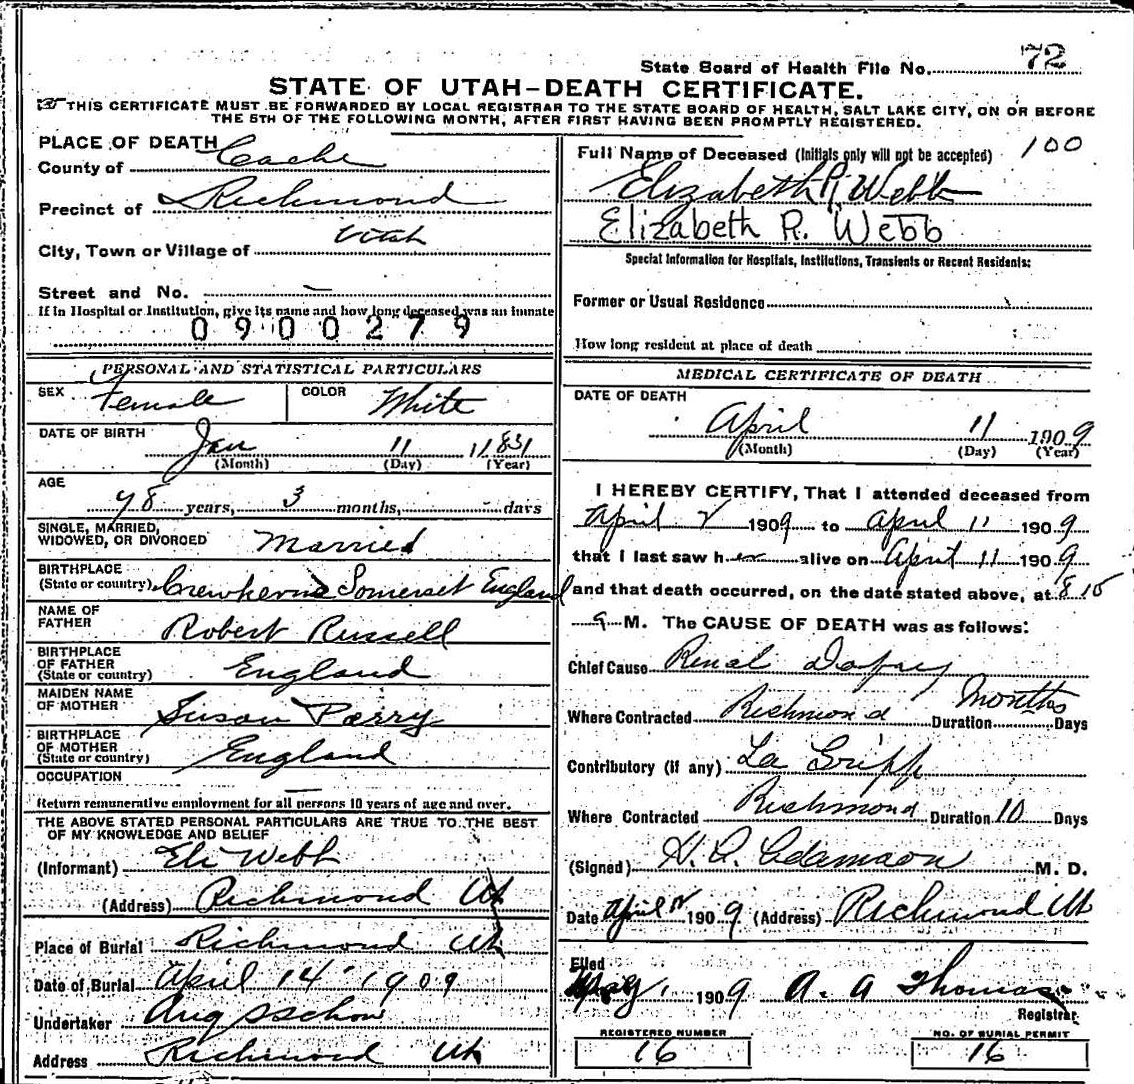 72
State Board of Health File No.
STATE OF UTAH—DEATH CERTIFICATE.
THIS CERTIFICATE MUST BE FORWARDED BY LOCAL REGISTRAR TO THE STATE BOARD OF HEALTH, SALT LAKE CITY, ON OR BEFORE
THE 5TH OF THE FOLLOWING MONTH, AFTER FIRST HAVING BEEN PROMPTLY REGISTERED.
PLACE OF DEATH
County of Cache
Precinct of Richmond
City, Town or Village of Utah
Street and No. —
If in Hospital or Institution, give its name and how long deceased was an inmate
0900279
PERSONAL AND STATISTICAL PARTICULARS
SEX Female COLOR White
DATE OF BIRTH Jan 11 1831
(Month) (Day) (Year)
AGE
78 years, 3 months, days
SINGLE, MARRIED,
WIDOWED, OR DIVORCED Married
BIRTHPLACE
(State or country) Crewkerne Somerset England
NAME OF
FATHER Robert Russell
BIRTHPLACE
OF FATHER
(State or country) England
MAIDEN NAME
OF MOTHER Susan Perry
BIRTHPLACE
OF MOTHER
(State or country) England
OCCUPATION —
Return remunerative employment for all persons 10 years of age and over.
THE ABOVE STATED PERSONAL PARTICULARS ARE TRUE TO THE BEST
OF MY KNOWLEDGE AND BELIEF
(Informant) Eli Webb
(Address) Richmond Ut
Place of Burial Richmond Ut
Date of Burial April 14 1909
Undertaker Aug
Address Richmond Ut
100
Full Name of Deceased (Initials only will not be accepted)
Elizabeth R. Webb
Elizabeth R. Webb
Special Information for Hospitals, Institutions, Transients or Recent Residents:
Former or Usual Residence
How long resident at place of death
MEDICAL CERTIFICATE OF DEATH
DATE OF DEATH
April 11 1909
(Month) (Day) (Year)
I HEREBY CERTIFY, That I attended deceased from
April 2 1909 to April 11 1909
that I last saw her alive on April 11 1909
and that death occurred, on the date stated above, at 8 15
a M. The CAUSE OF DEATH was as follows:
Chief Cause Renal
Where Contracted Richmond Duration Months Days
Contributory (if any) La Gripp
Where Contracted Richmond Duration 10 Days
(Signed) H. A. Adamson M. D.
Date April 1909 (Address) Richmond Ut
Filed
May 1 1909 A. A Thomas
Registrar
REGISTERED NUMBER
16
NO. OF BURIAL PERMIT
16